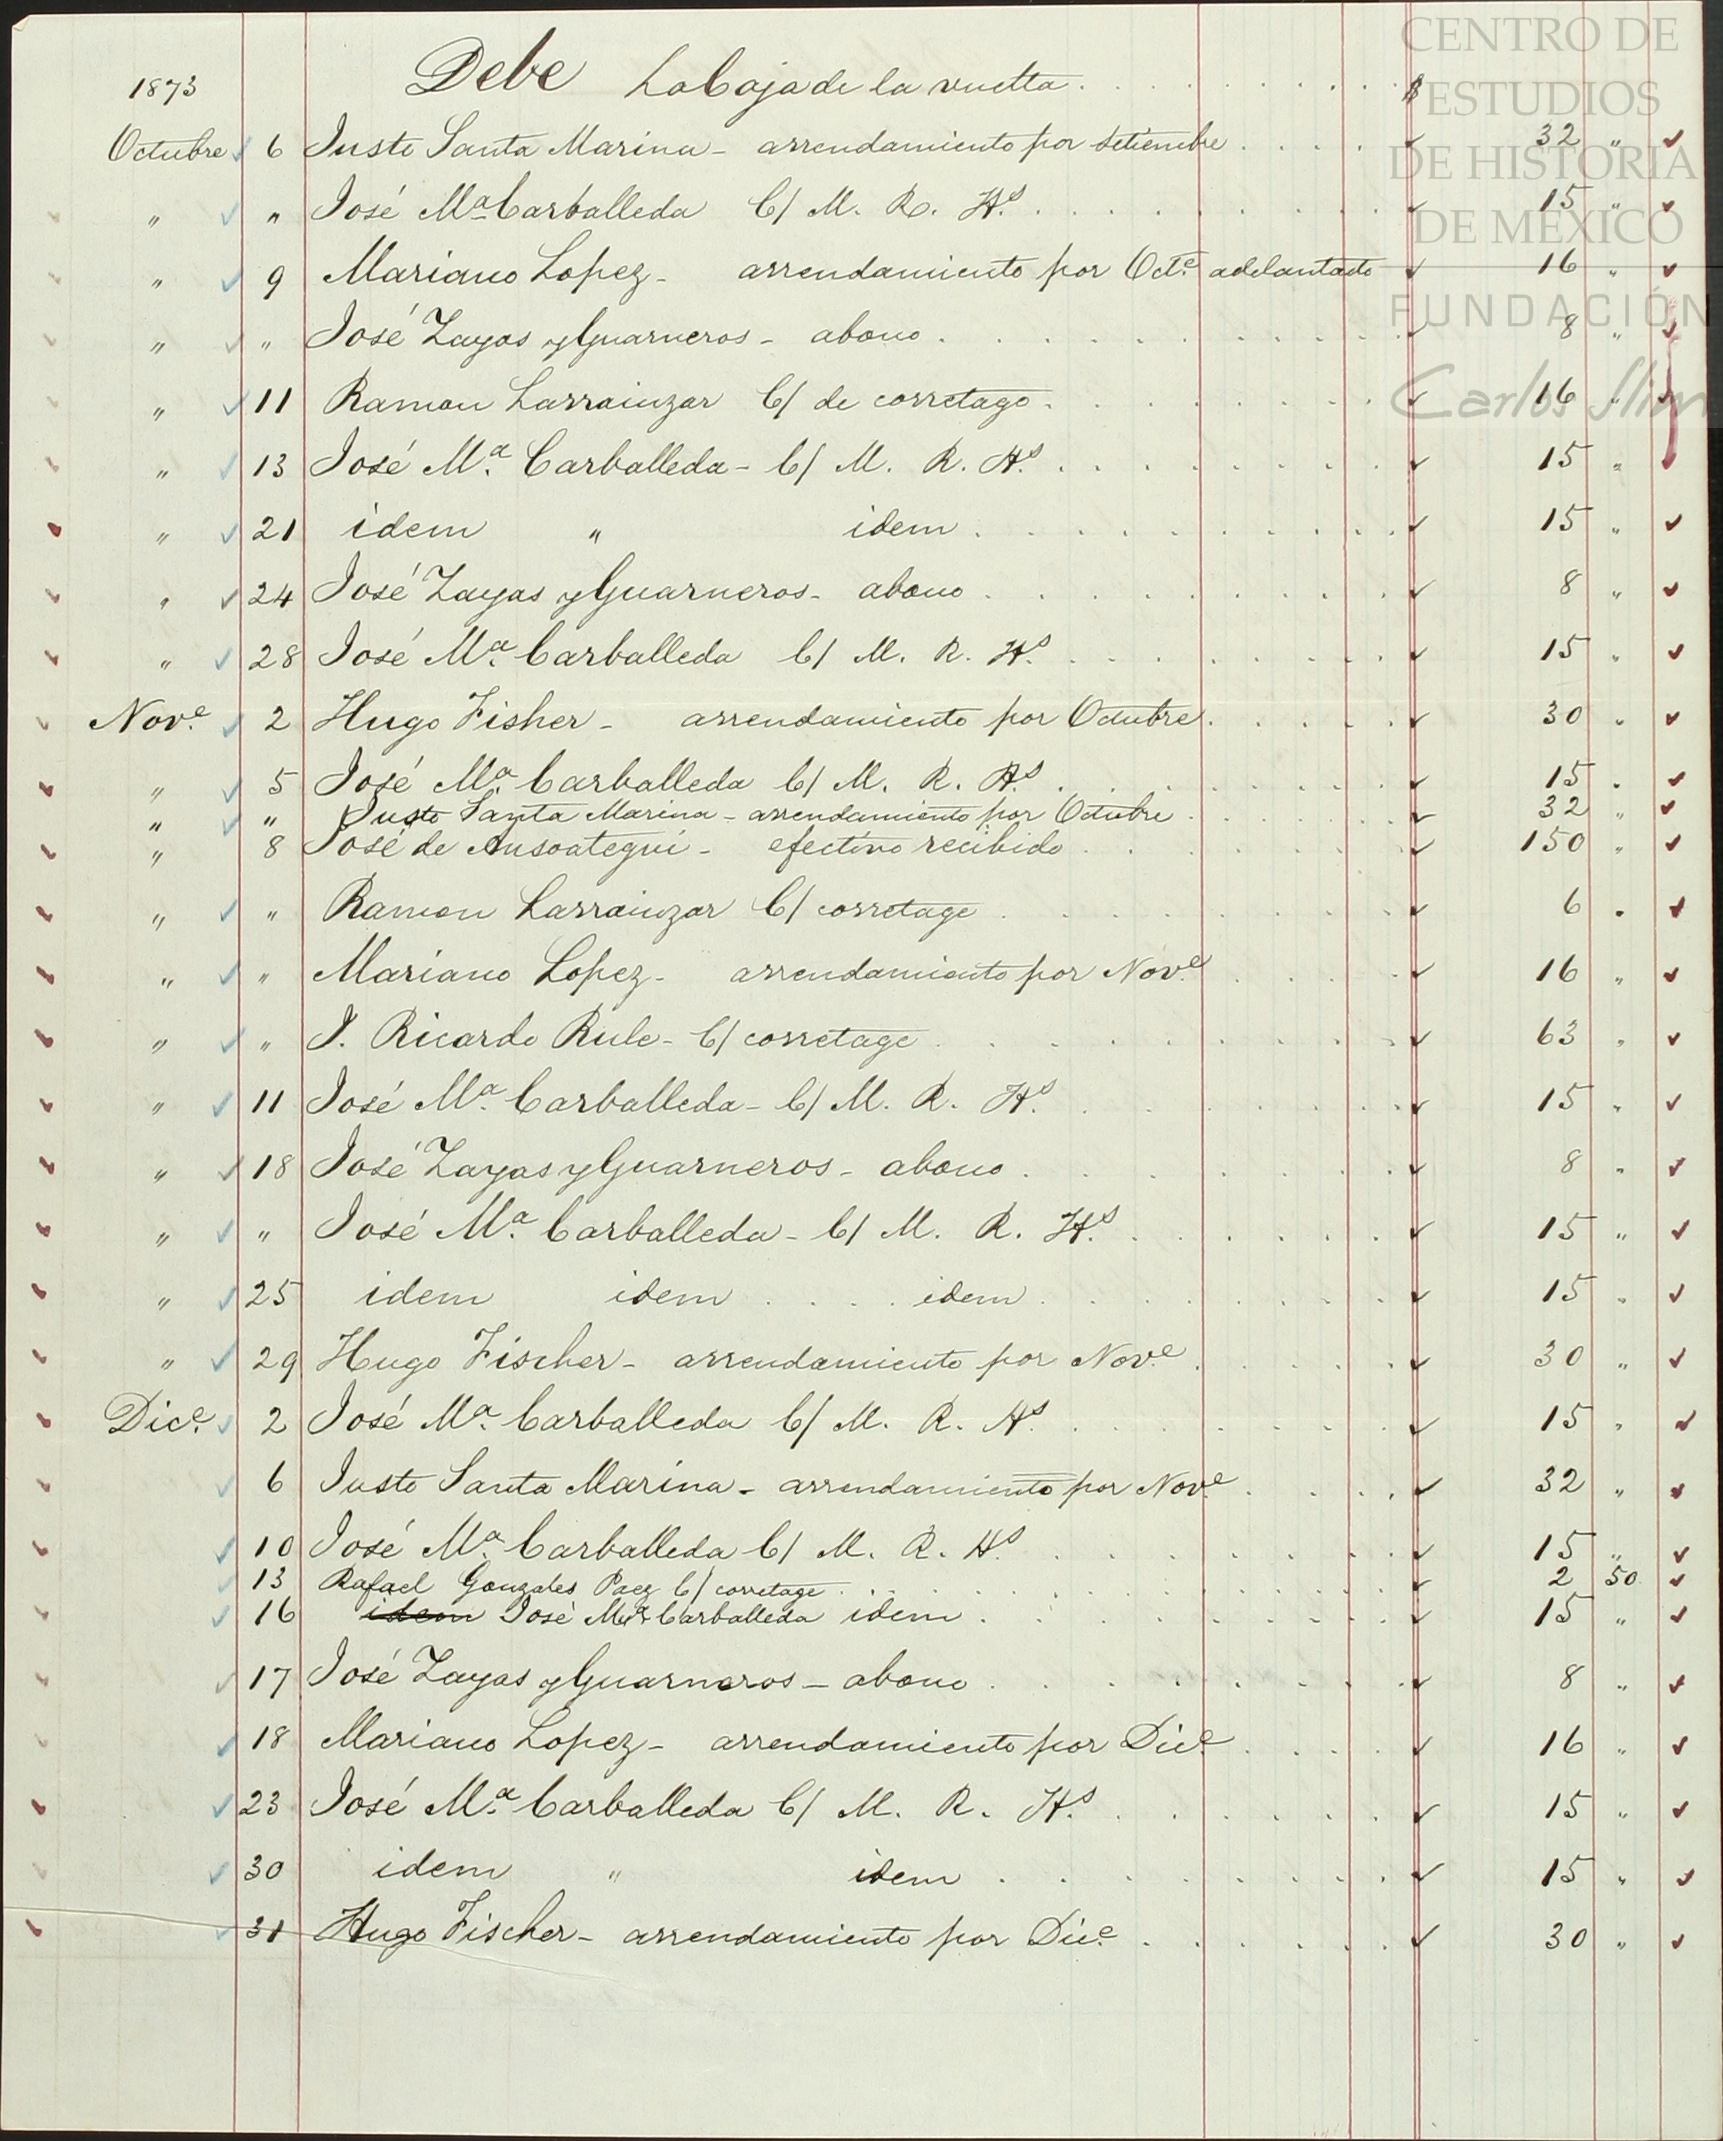 CENTRO DE
ESTUDIOS
DE HISTORIA
DE MÉXICO
FUNDACIÓN
Carlos Slim
1873 Debe La Caja de la vuelta . . . . . . . . . . $
Octubre 6 Justo Santa Marina - arrendamiento por Setiembre . . . . 32 "
" " José Mª Carballeda C/ M. R. Hs. . . . . . . . . . 15 "
" 9 Mariano Lopez - arrendamiento por Octe. adelantado 16 "
" " José Zayas y Guarneros - abono . . . . . . . . . 8 "
" 11 Ramon Larrainzar C/ de corretago . . . . . . . . 16 "
" 13 José Mª Carballeda - C/ M. R. Hs. . . . . . . . . 15 "
" 21 idem " idem . . . . . . . . . . 15 "
" 24 José Zayas y Guarneros - abono . . . . . . . . . 8 "
" 28 José Mª Carballeda C/ M. R. Hs. . . . . . . . . 15 "
Nove. 2 Hugo Fisher - arrendamiento por Octubre . . . . . 30 "
" 5 José Mª Carballeda C/ M. R. Hs. . . . . . . . 15 "
" " Justo Santa Marina - arrendamiento por Octubre . . . . . 32 "
" 8 José de Ansoategui - efectivo recibido . . . . . . . 150 "
" " Ramon Larrainzar C/ corretage . . . . . . . . 6 "
" " Mariano Lopez - arrendamiento por Nove. . . . . 16 "
" " J. Ricardo Rule - C/ corretage . . . . . . . . 63 "
" 11 José Mª Carballeda - C/ M. R. Hs. . . . . . . . 15 "
" 18 José Zayas y Guarneros - abono . . . . . . . . 8 "
" " José Mª Carballeda - C/ M. R. Hs. . . . . . . 15 "
" 25 idem idem . . . . idem . . . . . . . . 15 "
" 29 Hugo Fischer - arrendamiento por Nove. . . . . 30 "
Dice. 2 José Mª Carballeda C/ M. R. Hs. . . . . . . . 15 "
6 Justo Santa Marina - arrendamiento por Nove. . . . . 32 "
10 José Mª Carballeda C/ M. R. Hs. . . . . . . . 15 "
13 Rafael Gonzales Paez C/ corretage . . . . . . . . . 2 50
16 idem José Mª Carballeda idem . . . . . . . . . 15 "
17 José Zayas y Guarneros - abono . . . . . . . . 8 "
18 Mariano Lopez - arrendamiento por Dice. . . . . 16 "
23 José Mª Carballeda C/ M. R. Hs. . . . . . . . 15 "
30 idem " idem . . . . . . . . . 15 "
31 Hugo Fischer - arrendamiento por Dice. . . . . . . 30 "